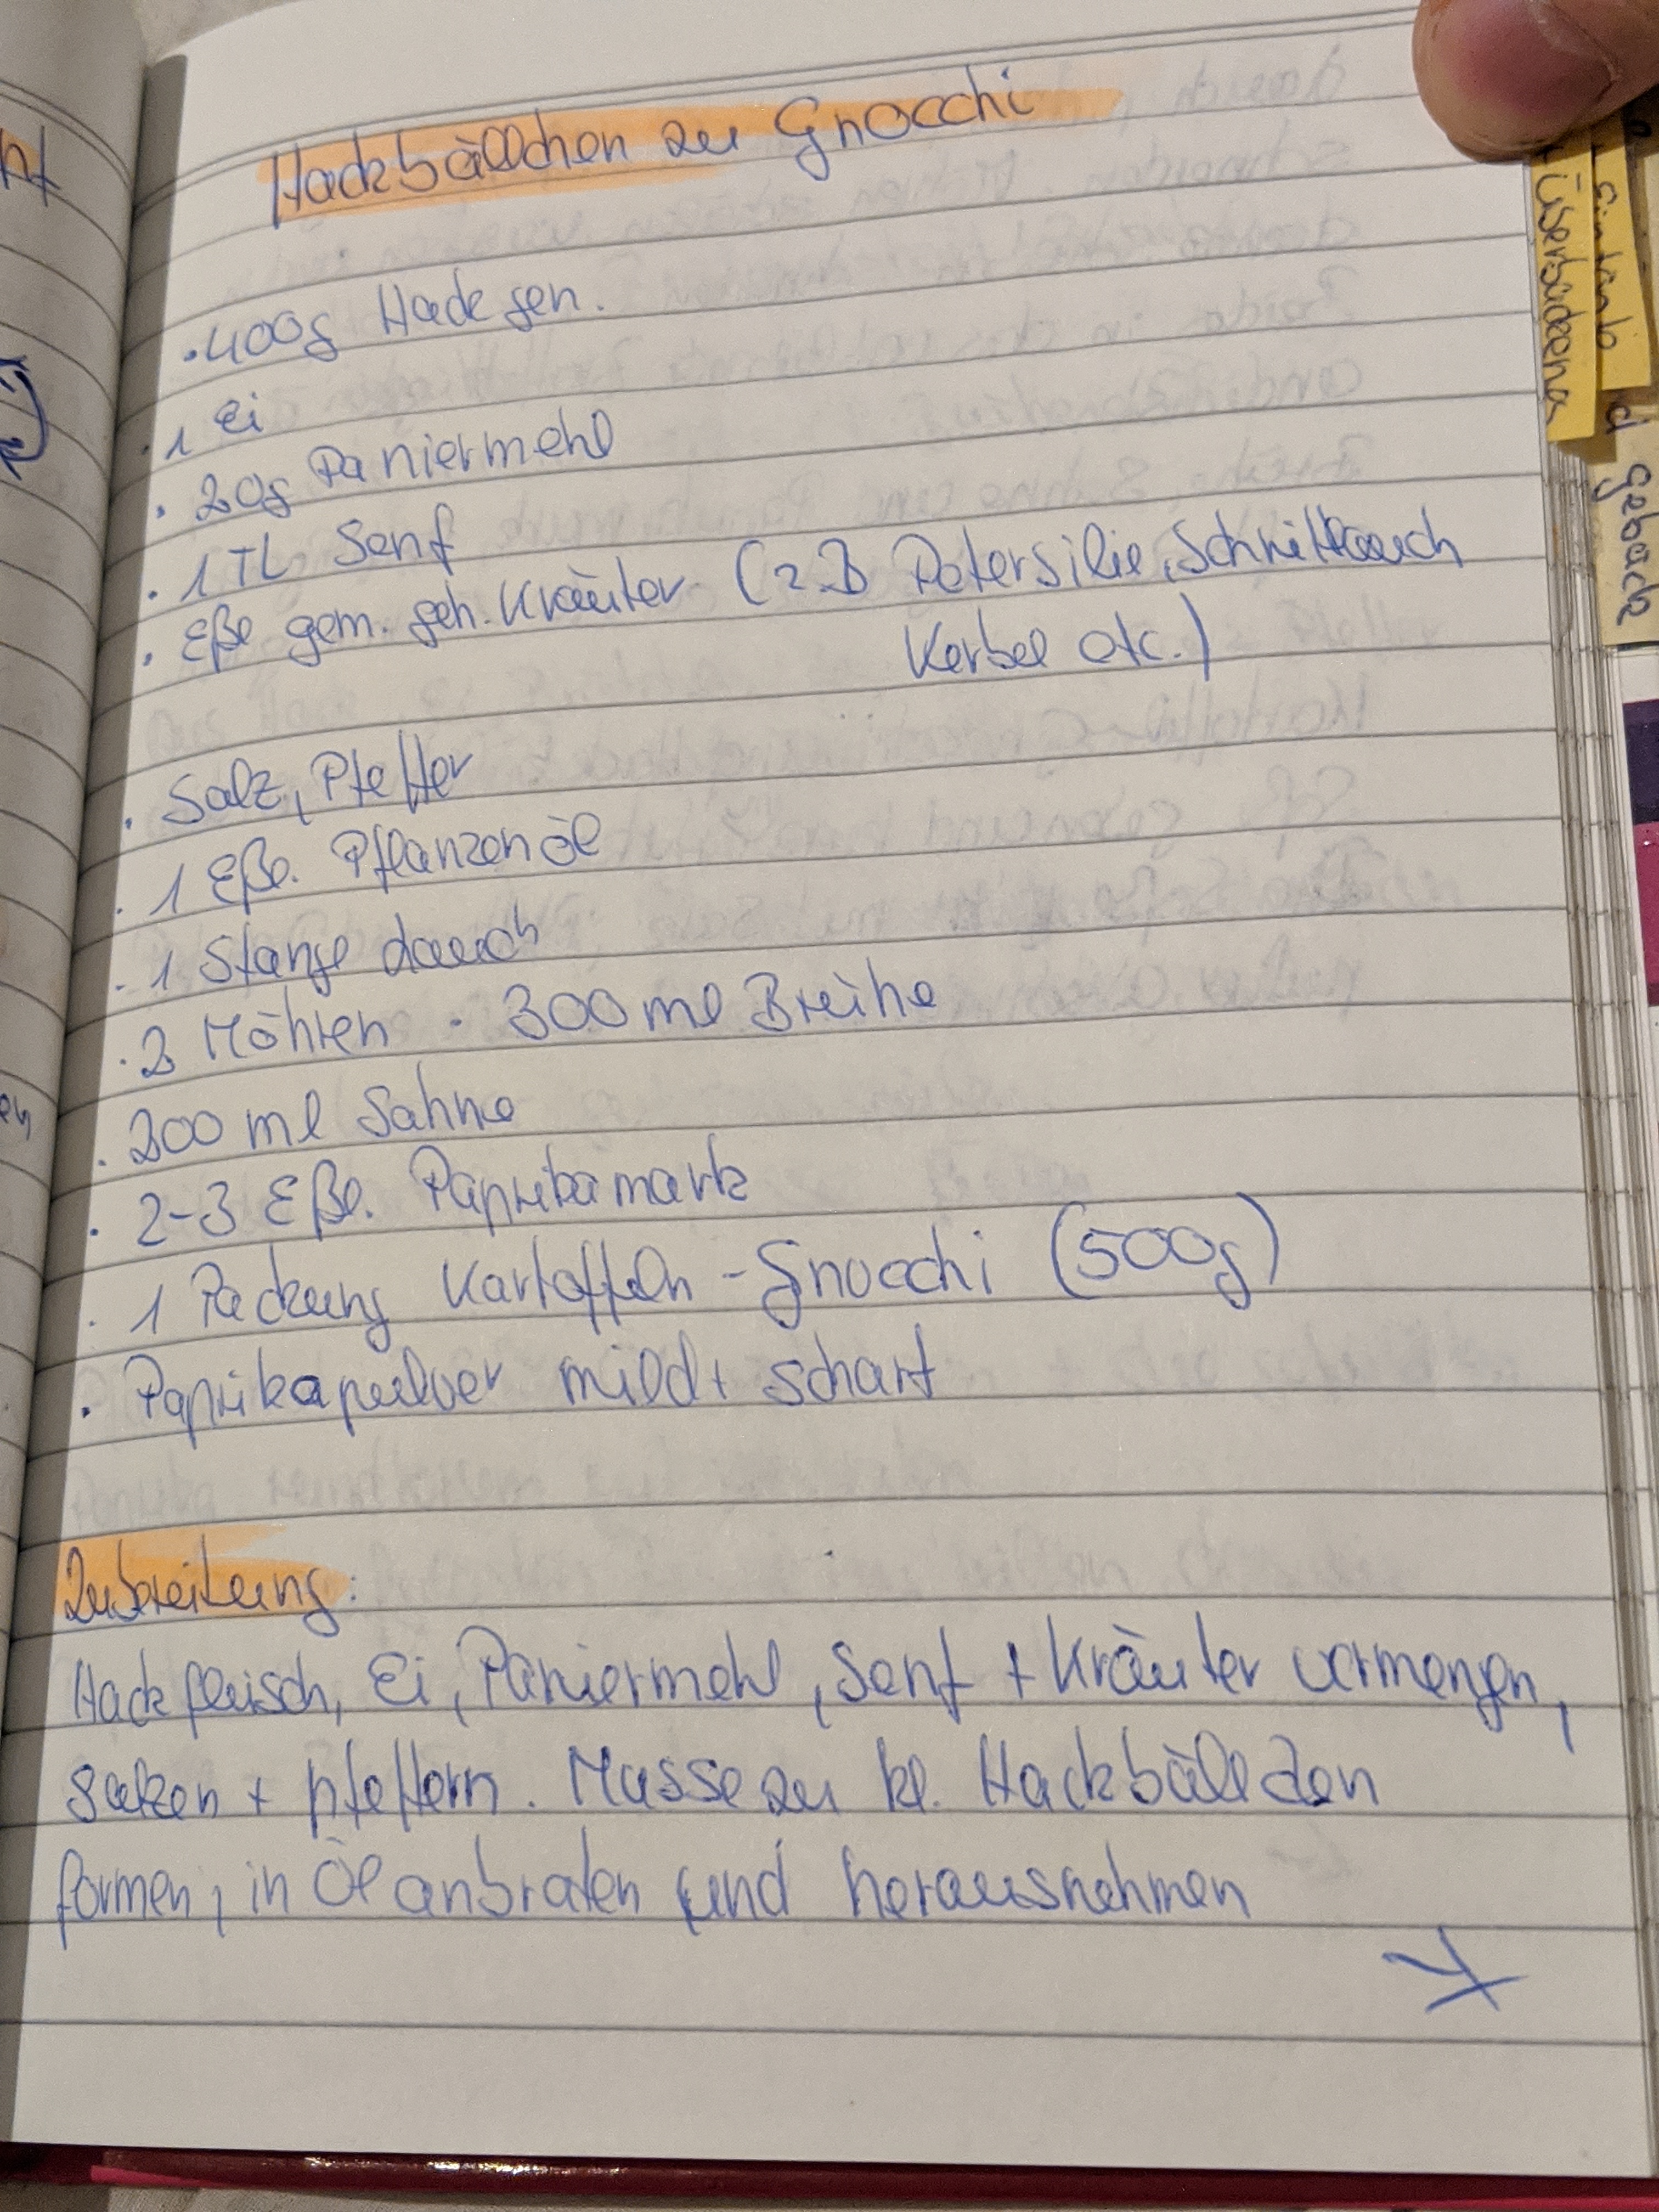 Hackbällchen zu Gnocchi
· 400g Hack gem.
· 1 Ei
· 20g Paniermehl
· 1 TL Senf
· Eßl gem. geh. Kräuter (z.B Petersilie, Schnittlauch
Kerbel etc.)
· Salz, Pfeffer
· 1 Eßl. Pflanzenöl
· 1 Stange Lauch
· 2 Möhren · 300 ml Brühe
· 200 ml Sahne
· 2-3 Eßl. Paprikamark
· 1 Packung Kartoffeln - Gnocchi (500g)
· Paprikapulver mild + scharf
Zubereitung:
Hackfleisch, Ei, Paniermehl, Senf + Kräuter vermengen,
salzen + pfeffern. Masse zu kl. Hackbällchen
formen, in Öl anbraten und herausnehmen
Überbackena
d gebäck